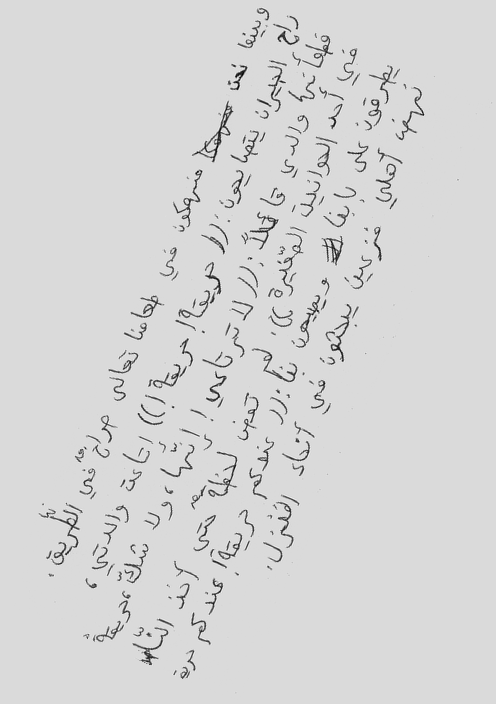 وبينما نحن منهمكون في طعامنا تعالى صراخ في الطّريق.
راح الجيران يتصايحون: (( حريقة! حريقة! )) ارتاعت والدتي،
فطمأنها والدي قائلاً: (( لا ترتاعي! إنّها، ولا شكّ، حريقة
في أحد الحوانيت الصّغيرة )). لم تمض لحظة حتّى أخذ النّاس
يطرقون على بابنا ويصيحون بنا: (( عندكم حريقة! عندكم حرية
نهض أهلي فزعين يبحثون في أنحاء المنزل.